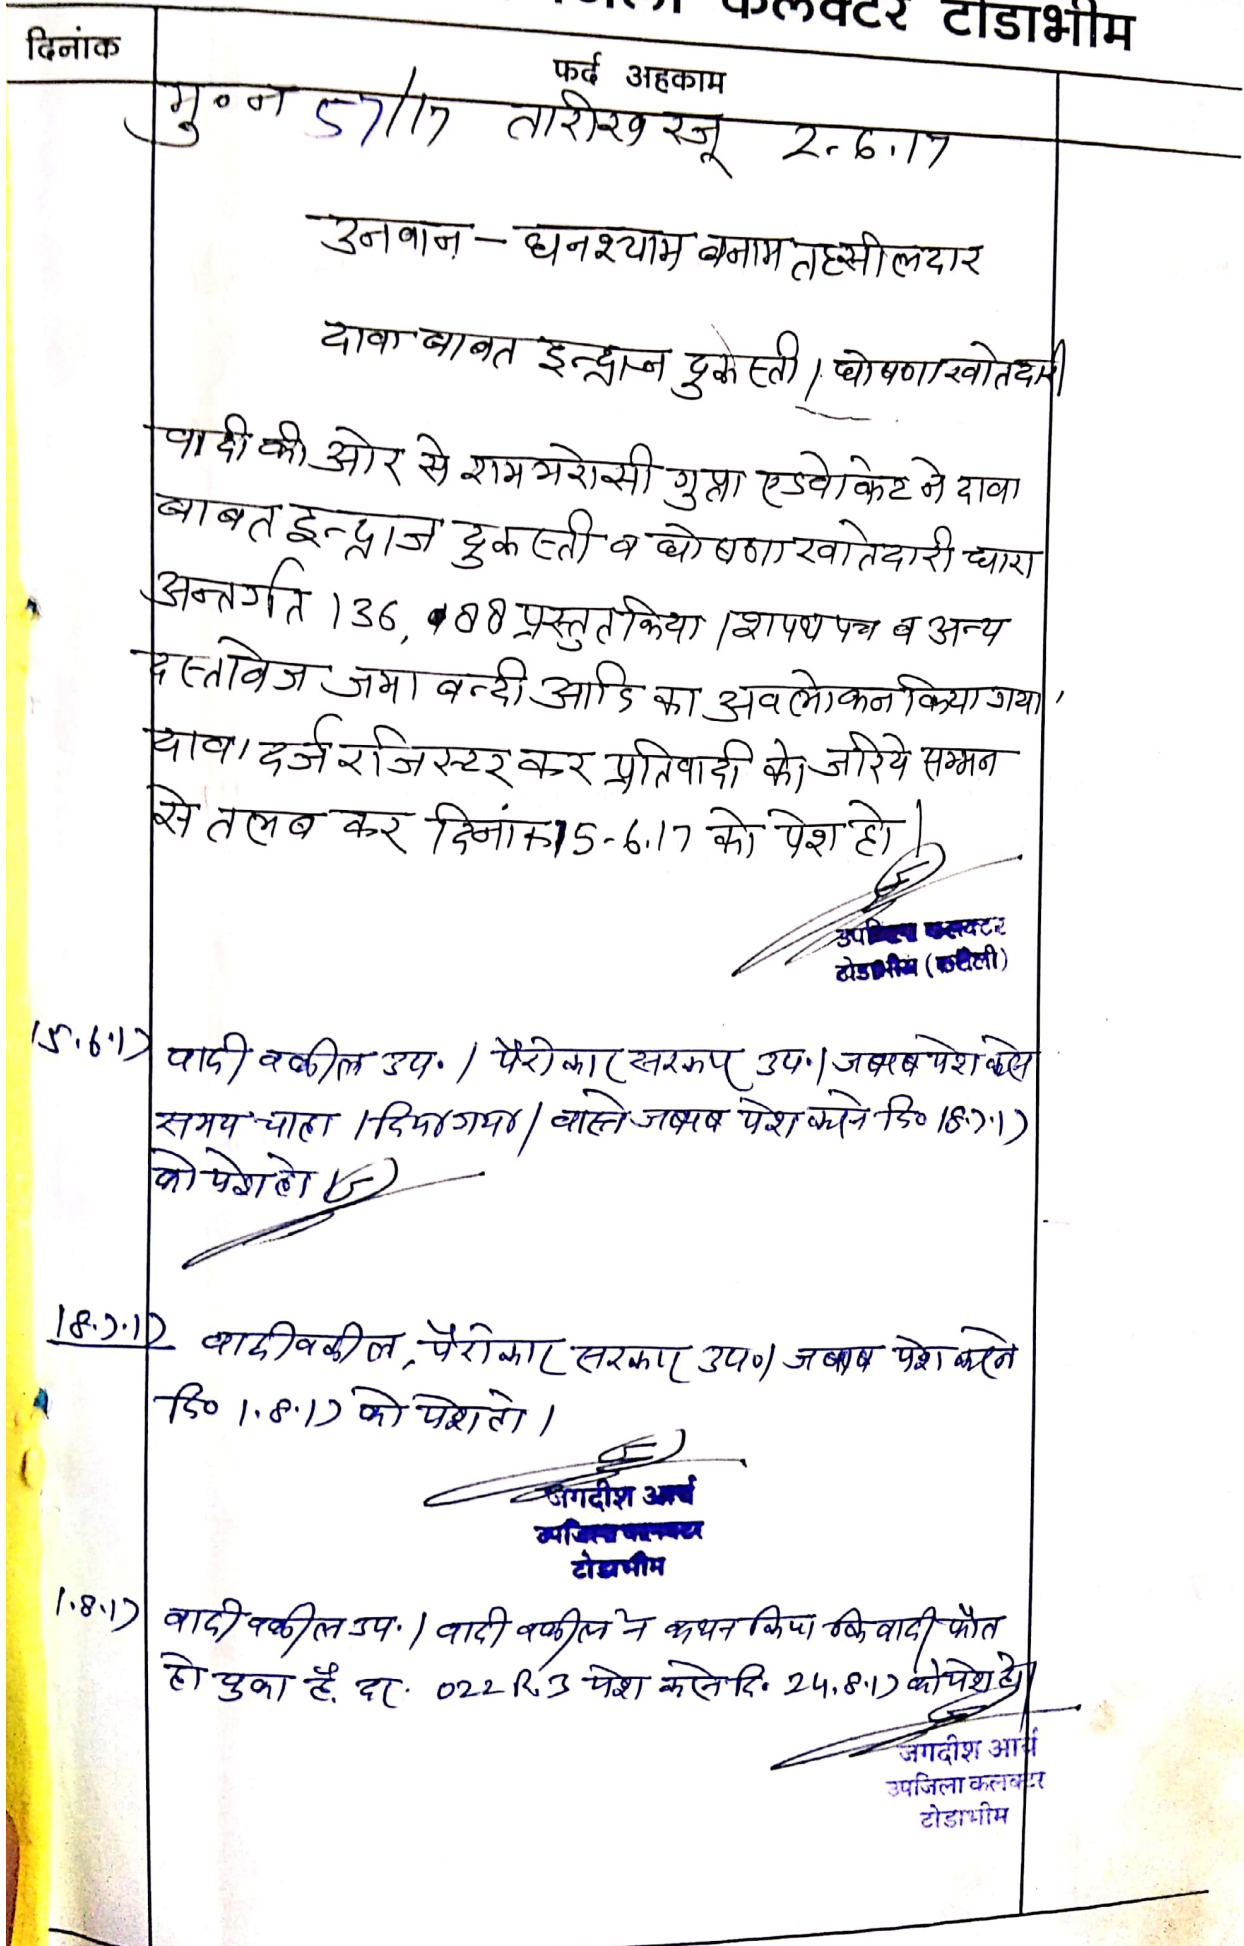 कलक्टर टोडाभीम
दिनांक
फर्द अहकाम
मु०न 57/17 तारीख रजू 2.6.17
उनवान - घनश्याम बनाम तहसीलदार
दावा बाबत इन्द्राज दुरूस्ती / घोषणा खातेदारी
वादी की ओर से रामभरोसी गुप्ता एडवोकेट ने दावा
बाबत इन्द्राज दुरूस्ती व घोषणा खातेदारी धारा
अन्तर्गत 136, 88 प्रस्तुत किया । शपथ पत्र व अन्य
दस्तावेज जमा बन्दी आदि का अवलोकन किया गया ।
दावा दर्ज रजिस्टर कर प्रतिवादी को जरिये सम्मन
से तलब कर दिनांक 15-6.17 को पेश हो ।
उपजिला कलक्टर
टोडाभीम (करौली)
15.6.17 वादी वकील उप. । पैरोकार सरकार उप. । जबाब पेश करने
समय चाहा । दिया गया । वास्ते जबाब पेश करने दि० 18.7.17
को पेश हो ।
18.7.17 वादी वकील, पैरोकार सरकार उप० । जबाब पेश करने
दि० 1.8.17 को पेश हो ।
जगदीश आर्य
उपजिला कलक्टर
टोडाभीम
1.8.17 वादी वकील उप. । वादी वकील ने कथन किया कि वादी फौत
हो चुका है. दर. 022 R.3 पेश करने दि. 24.8.17 को पेश हो
जगदीश आर्य
उपजिला कलक्टर
टोडाभीम